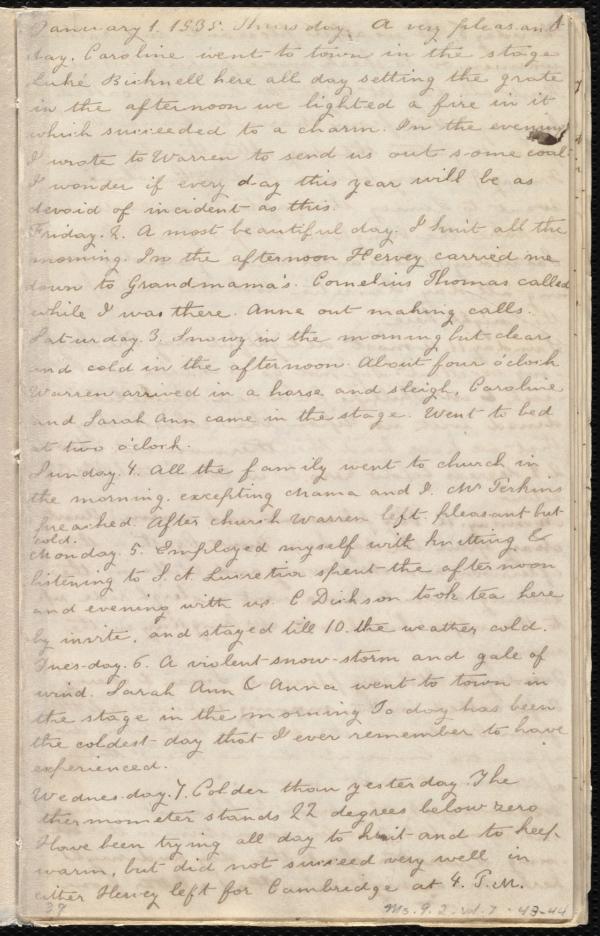 January 1. 1835. Thursday. A very pleasant
day. Caroline went to town in the stage
Luke Bicknell here all day setting the grate
in the afternoon we lighted a fire in it
which succeeded to a charm. In the evening
I wrote to Warren to send us out some coal.
I wonder if every day this year will be as
devoid of incident as this.
Friday. 2. A most beautiful day. I knit all the
morning. In the afternoon Hervey carried me
down to Grandmama's. Cornelius Thomas called
while I was there. Anne out making calls.
Saturday. 3. Snowy in the morning but clear
and cold in the afternoon. About four o'clock
Warren arrived in a horse and sleigh. Caroline
and Sarah Ann came in the stage. Went to bed
at two o'clock.
Sunday. 4. All the family went to church in
the morning. excepting Mama and I. Mr Perkins
preached. After church Warren left. pleasant but
cold.
Monday. 5. Employed myself with knitting &
listening to S. A. Lucretia spent the afternoon
and evening with us. C Dickson took tea here
by invite, and stayed till 10. the weather cold.
Tues-day. 6. A violent snow-storm and gale of
wind. Sarah Ann & Anna went to town in
the stage in the morning To day has been
the coldest day that I ever remember to have
experienced.
Wednes-day. 7. Colder than yesterday. The
thermometer stands 22 degrees below zero
Have been trying all day to knit and to keep
warm, but did not succeed very well in
either Hervey left for Cambridge at 4. P.M.
39 Ms. 9. 2. vol. 7 - 43-44